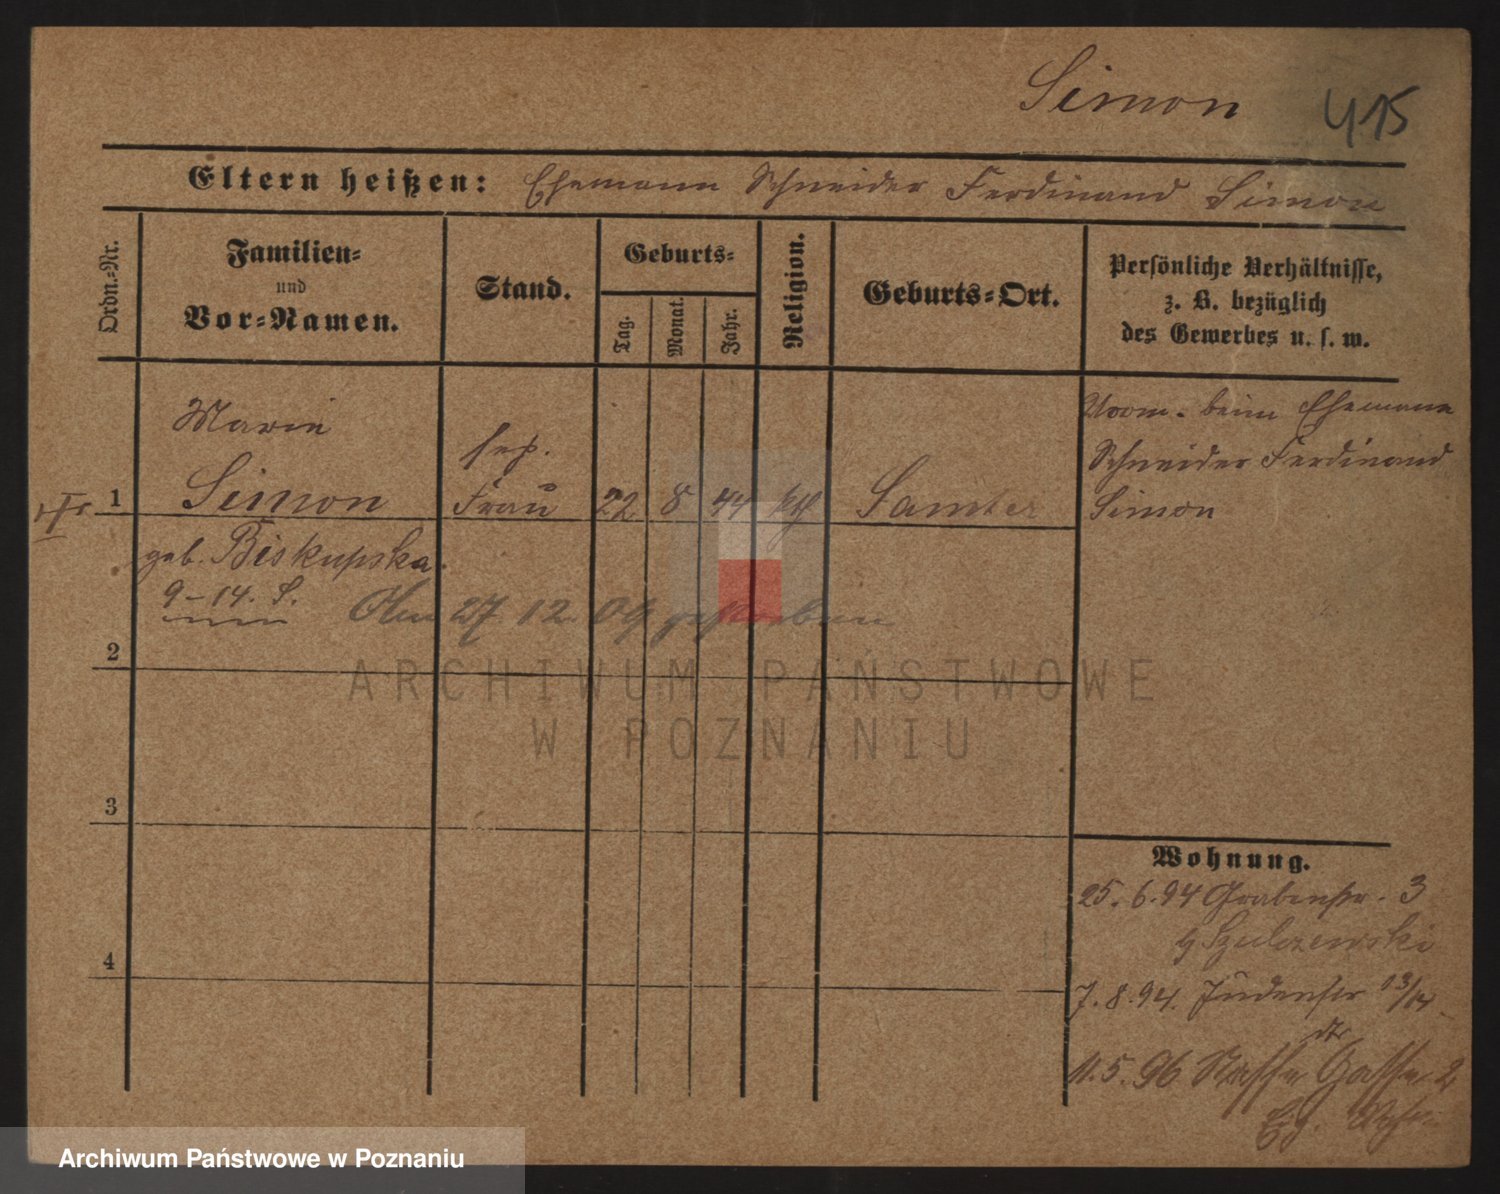 Simon 415
Eltern heißen: Ehemann Schneider Ferdinand Simon
Ordn.-Nr.
Familien-
und
Vor-Namen.
Stand.
Geburts-
Tag.
Monat.
Jahr.
Religion.
Geburts-Ort.
Persönliche Verhältnisse,
z. B. bezüglich
des Gewerbes u. s. w.
Marie
sep.
1 Simon Frau 22 8 44 kth Samter
geb. Biskupska.
9-14. S.
Am 27 12. 09 gestorben
Vorm. beim Ehemann
Schneider Ferdinand
Simon
2
3
4
Wohnung.
25. 6. 94 Grabenstr. 3
b Szulczewski
7. 8. 94. Judenstr 13/14
11. 5. 96 Nasse Gasse 2
Eig.
ARCHIWUM PAŃSTWOWE
W POZNANIU
Archiwum Państwowe w Poznaniu